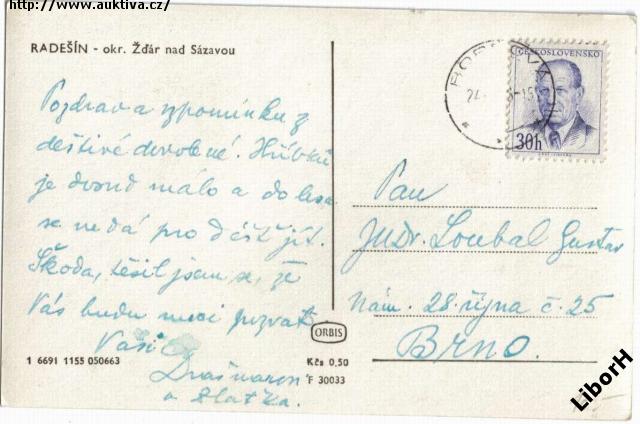 http://www.auktiva.cz/
RADEŠÍN - okr. Žďár nad Sázavou
ČESKOSLOVENSKO
30h
Pozdrav a vzpomínku z
deštivé dovolené. Hříbků
je dosud málo a do lesa
se nedá pro déšť jít.
Škoda, těšil jsem se, že
Vás budu moci pozvat
Vaši
a Zlatka.
Pan
JUDr. Loubal Gustav
Nám. 28. října č. 25
Brno.
ORBIS
1 6691 1155 050663
Kčs 0,50
F 30033
LiborH